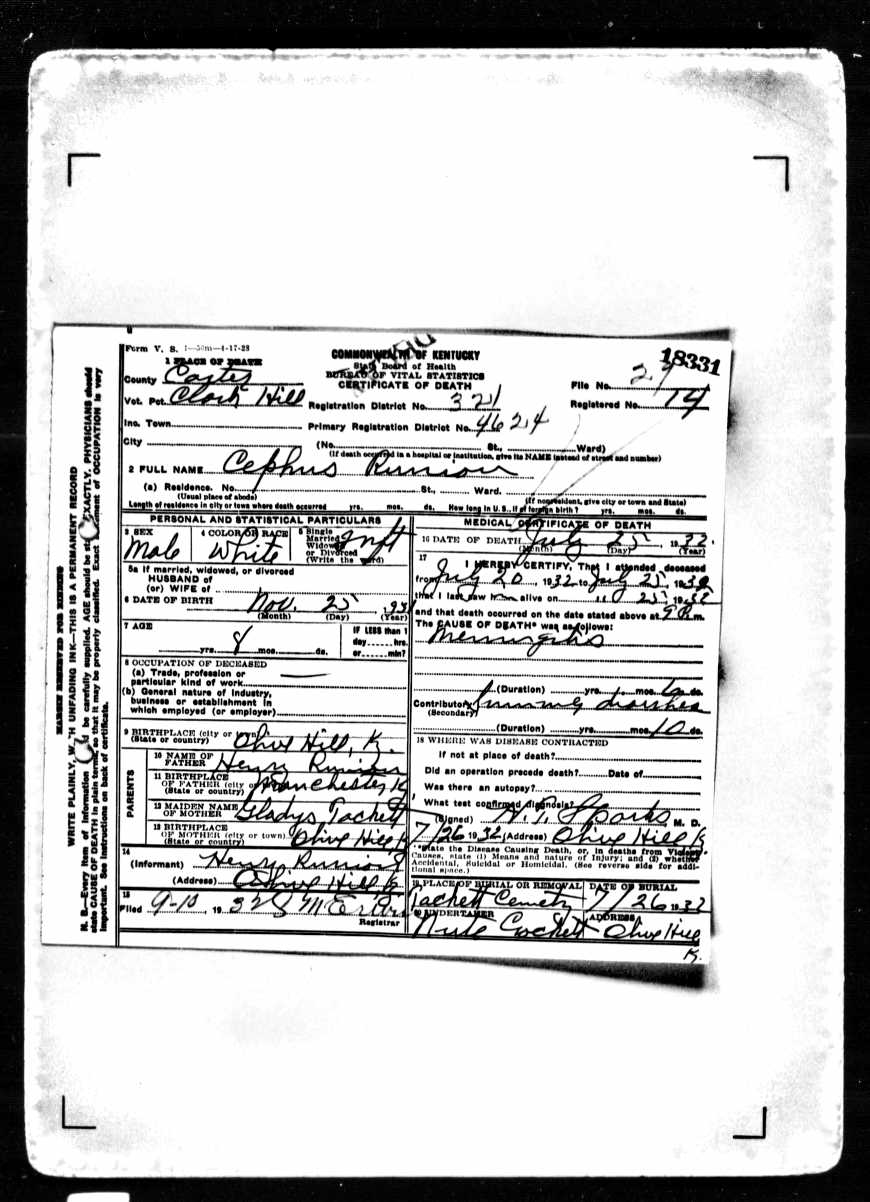 Form V. S. 1—50m—4-17-28
COMMONWEALTH OF KENTUCKY
State Board of Health
BUREAU OF VITAL STATISTICS
CERTIFICATE OF DEATH
18331
1 PLACE OF DEATH
County Carter
File No. 27
Vot. Pct. Clark Hill
Registration District No. 321
Registered No. 74
Inc. Town
Primary Registration District No. 4624
City (No. St., Ward)
(If death occurred in a hospital or institution, give its NAME instead of street and number)
2 FULL NAME Cephus Runion
(a) Residence. No. St., Ward.
(Usual place of abode) (If nonresident, give city or town and State)
Length of residence in city or town where death occurred yrs. mos. ds. How long in U. S., if of foreign birth? yrs. mos. ds.
PERSONAL AND STATISTICAL PARTICULARS
3 SEX Male
4 COLOR OR RACE White
5 Single Married Widowed or Divorced (Write the word) Inft
5a If married, widowed, or divorced
HUSBAND of
(or) WIFE of
6 DATE OF BIRTH Nov. 25, 1931
(Month) (Day) (Year)
7 AGE yrs. 8 mos. ds.
IF LESS than 1 day hrs. or min?
8 OCCUPATION OF DECEASED
(a) Trade, profession or particular kind of work
(b) General nature of industry, business or establishment in which employed (or employer)
9 BIRTHPLACE (city or town) Olive Hill, K.
(State or country)
PARENTS
10 NAME OF FATHER Henry Runion
11 BIRTHPLACE OF FATHER (city or town) Manchester, K
(State or country)
12 MAIDEN NAME OF MOTHER Gladys Tackett
13 BIRTHPLACE OF MOTHER (city or town) Olive Hill K
(State or country)
14
(Informant) Henry Runion
(Address) Olive Hill K
15
Filed 9-10, 1932
Registrar
MEDICAL CERTIFICATE OF DEATH
16 DATE OF DEATH July 25, 1932
(Month) (Day) (Year)
17
I HEREBY CERTIFY, That I attended deceased
from July 20, 1932 to July 25, 1932
that I last saw him alive on 25 1932
and that death occurred on the date stated above at 9 P. m.
The CAUSE OF DEATH* was as follows:
Meningitis
(Duration) yrs. mos. ds.
Contributory Summer diarrhea
(Secondary)
(Duration) yrs. mos. 10 ds.
18 WHERE WAS DISEASE CONTRACTED
If not at place of death?
Did an operation precede death? Date of
Was there an autopsy?
What test confirmed diagnosis?
(Signed) Sparks M. D.
7/26 1932 (Address) Olive Hill K
*State the Disease Causing Death, or, in deaths from Violent Causes, state (1) Means and nature of Injury; and (2) whether Accidental, Suicidal or Homicidal. (See reverse side for additional space.)
19 PLACE OF BURIAL OR REMOVAL Tackett Cemetery
DATE OF BURIAL 7/26 1932
20 UNDERTAKER
ADDRESS Olive Hill K.
MARGIN RESERVED FOR BINDING
WRITE PLAINLY, WITH UNFADING INK—THIS IS A PERMANENT RECORD
N. B.—Every item of information be carefully supplied. AGE should be EXACTLY. PHYSICIANS should
state CAUSE OF DEATH in plain terms, so that it may be properly classified. Exact of OCCUPATION is very
important. See instructions on back of certificate.